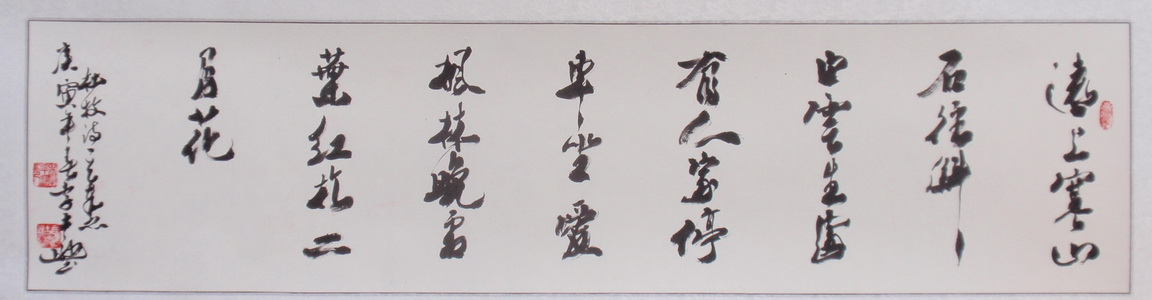 遠上寒山
石徑斜
白雲生處
有人家停
車坐愛
楓林晚霜
葉紅於二
月花
杜牧詩一首
庚寅年春